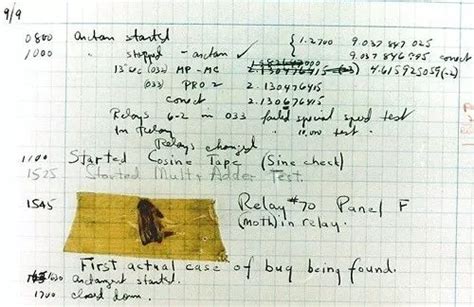 9/9
0800 antan started { 1.2700 9.037 847 025
1000 " stopped - antan ✓ 9.037 846 995 conect
13"uc (032) MP - MC 2.130476415 (-3) 4.615925059(-2)
(033) PRO 2 2.130476415
conect 2.130676415
Relays 6-2 in 033 failed special speed test
in relay " 10.000 test.
Relays changed
1100 Started Cosine Tape (Sine check)
1525 Started Mult + Adder Test.
1545 Relay #70 Panel F
(moth) in relay.
First actual case of bug being found.
1630 antangent started.
1700 closed down.